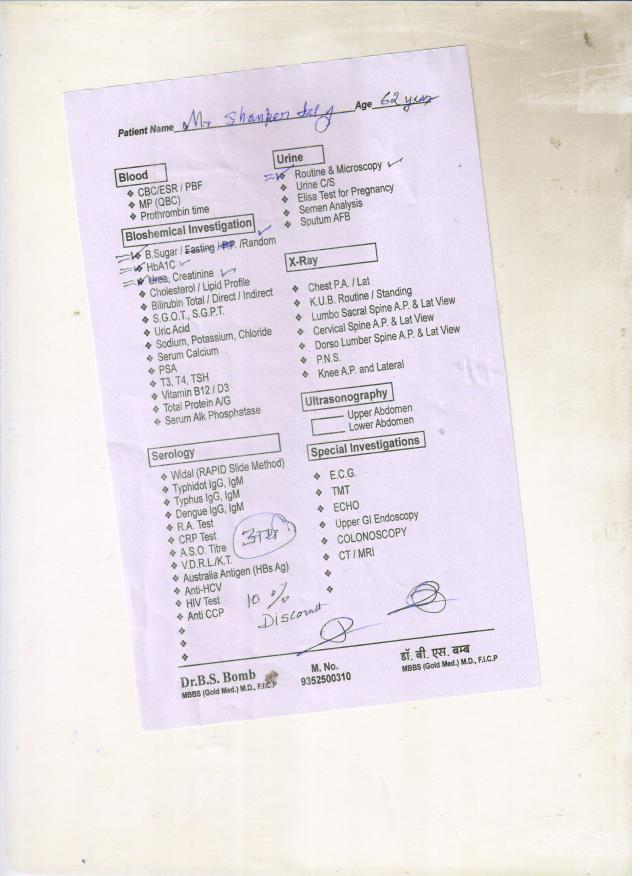 Patient Name Mr Shanker Age 62 years
Blood
❖ CBC/ESR / PBF
❖ MP (QBC)
❖ Prothrombin time
Bioshemical Investigation
❖ B.Sugar / Fasting / P.P. /Random
❖ HbA1C
❖ Urea, Creatinine
❖ Cholesterol / Lipid Profile
❖ Bilirubin Total / Direct / Indirect
❖ S.G.O.T., S.G.P.T.
❖ Uric Acid
❖ Sodium, Potassium, Chloride
❖ Serum Calcium
❖ PSA
❖ T3, T4, TSH
❖ Vitamin B12 / D3
❖ Total Protein A/G
❖ Serum Alk Phosphatase
Serology
❖ Widal (RAPID Slide Method)
❖ Typhidot IgG, IgM
❖ Typhus IgG, IgM
❖ Dengue IgG, IgM
❖ R.A. Test
❖ CRP Test
❖ A.S.O. Titre
❖ V.D.R.L./K.T.
❖ Australia Antigen (HBs Ag)
❖ Anti-HCV
❖ HIV Test
❖ Anti CCP
10 %
Discount
Urine
❖ Routine & Microscopy
❖ Urine C/S
❖ Elisa Test for Pregnancy
❖ Semen Analysis
❖ Sputum AFB
X-Ray
❖ Chest P.A. / Lat
❖ K.U.B. Routine / Standing
❖ Lumbo Sacral Spine A.P. & Lat View
❖ Cervical Spine A.P. & Lat View
❖ Dorso Lumber Spine A.P. & Lat View
❖ P.N.S.
❖ Knee A.P. and Lateral
Ultrasonography
Upper Abdomen
Lower Abdomen
Special Investigations
❖ E.C.G.
❖ TMT
❖ ECHO
❖ Upper GI Endoscopy
❖ COLONOSCOPY
❖ CT / MRI
Dr.B.S. Bomb
MBBS (Gold Med.) M.D., F.I.C.P
M. No.
9352500310
डॉ. बी. एस. बम्ब
MBBS (Gold Med.) M.D., F.I.C.P